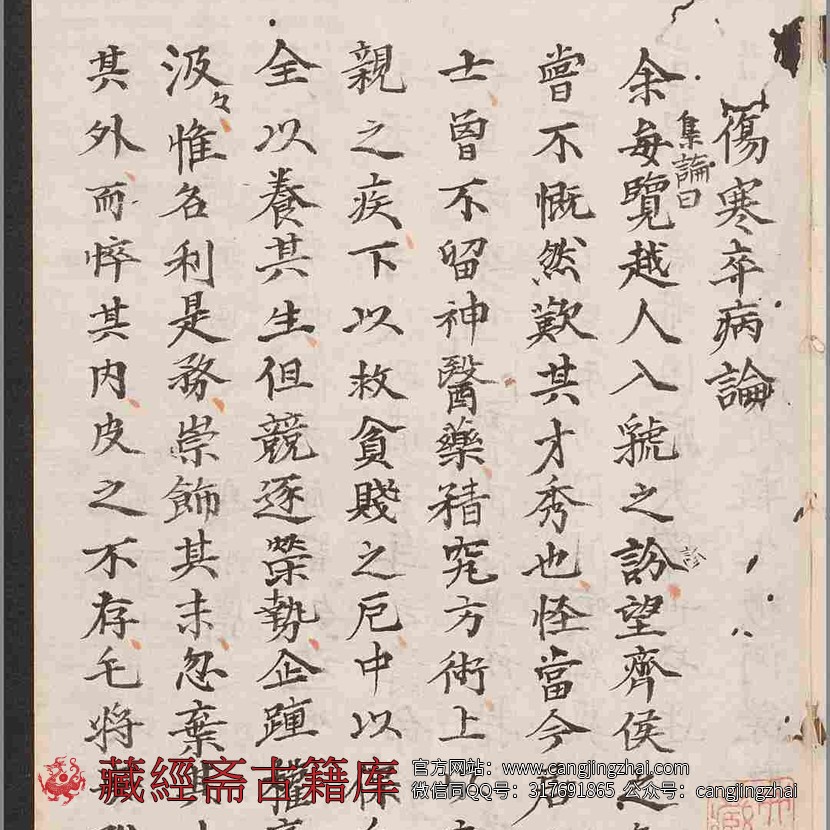 傷寒卒病論
集論曰
余每覽越人入虢之訜望齊侯之
診
嘗不慨然歎其才秀也怪當今居
士曾不留神醫藥精究方術上以
親之疾下以救貧賤之厄中以保
全以養其生但競逐榮勢企踵權
汲々惟名利是務崇飾其末忽棄其
其外而悴其內皮之不存毛將
藏經斋古籍库
官方网站：www.cangjingzhai.com
微信同QQ号：317691865 公众号：cangjingzhai